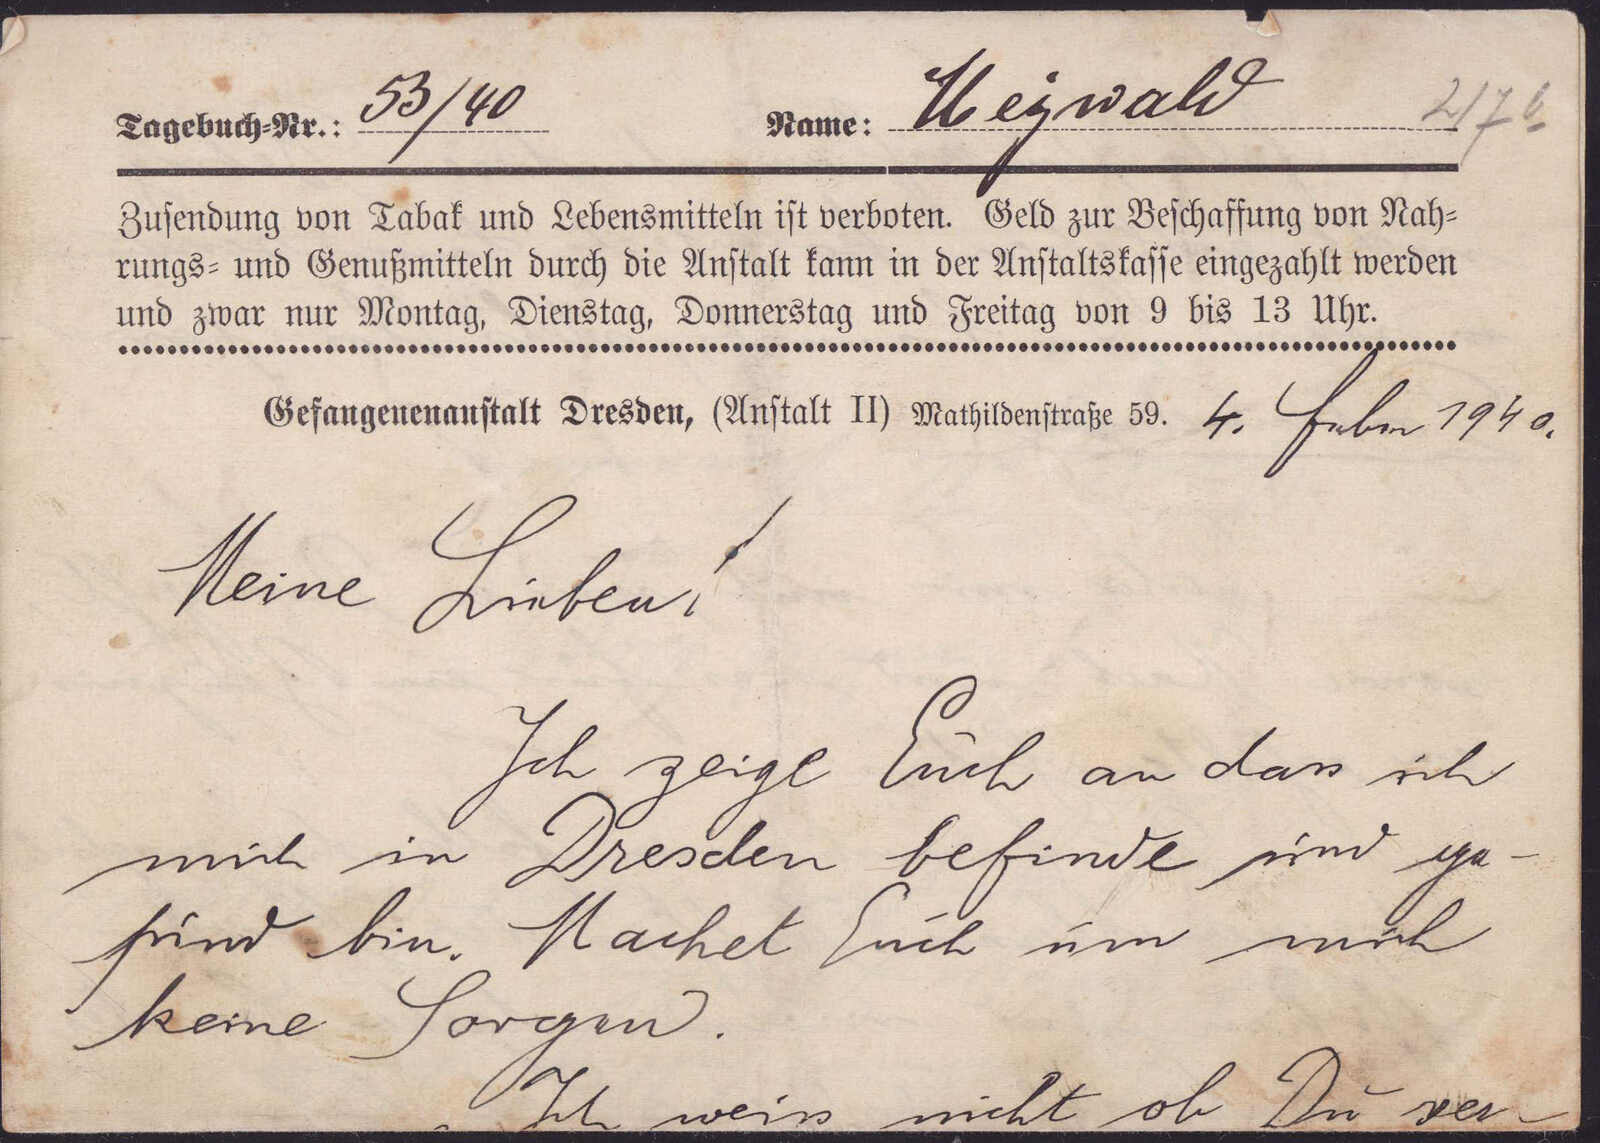 Tagebuch-Nr.: 53/40 Name: Uejwald 217b
Zusendung von Tabak und Lebensmitteln ist verboten. Geld zur Beschaffung von Nah-
rungs- und Genußmitteln durch die Anstalt kann in der Anstaltskasse eingezahlt werden
und zwar nur Montag, Dienstag, Donnerstag und Freitag von 9 bis 13 Uhr.
Gefangenenanstalt Dresden, (Anstalt II) Mathildenstraße 59. 4. Feber 1940.
Meine Lieben!
Ich zeige Euch an dass ich
mich in Dresden befinde und ge-
sund bin. Machet Euch um mich
keine Sorgen.
Ich weiss nicht ob Du ver-